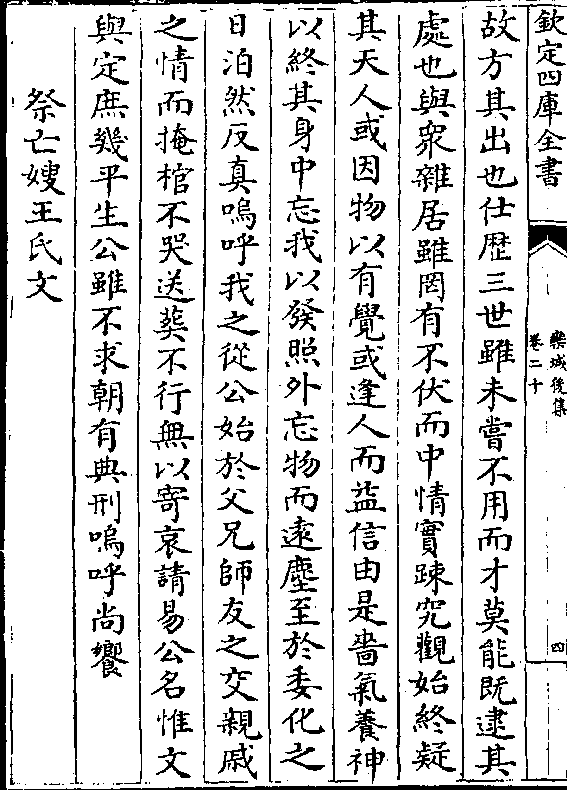 欽定四庫全書
欒城後集
卷二十
四
故方其出也仕歴三世雖未嘗不用而才莫能既逮其
處也與衆雜居雖罔有不伏而中情實踈究觀始終疑
其天人或因物以有覺或逢人而益信由是嗇氣養神
以終其身中忘我以發照外忘物而逺塵至於委化之
日泊然反真嗚呼我之從公始於父兄師友之交親戚
之情而掩棺不哭送葬不行無以寄哀請易公名惟文
與定庶幾平生公雖不求朝有典刑嗚呼尚饗
祭亡嫂王氏文